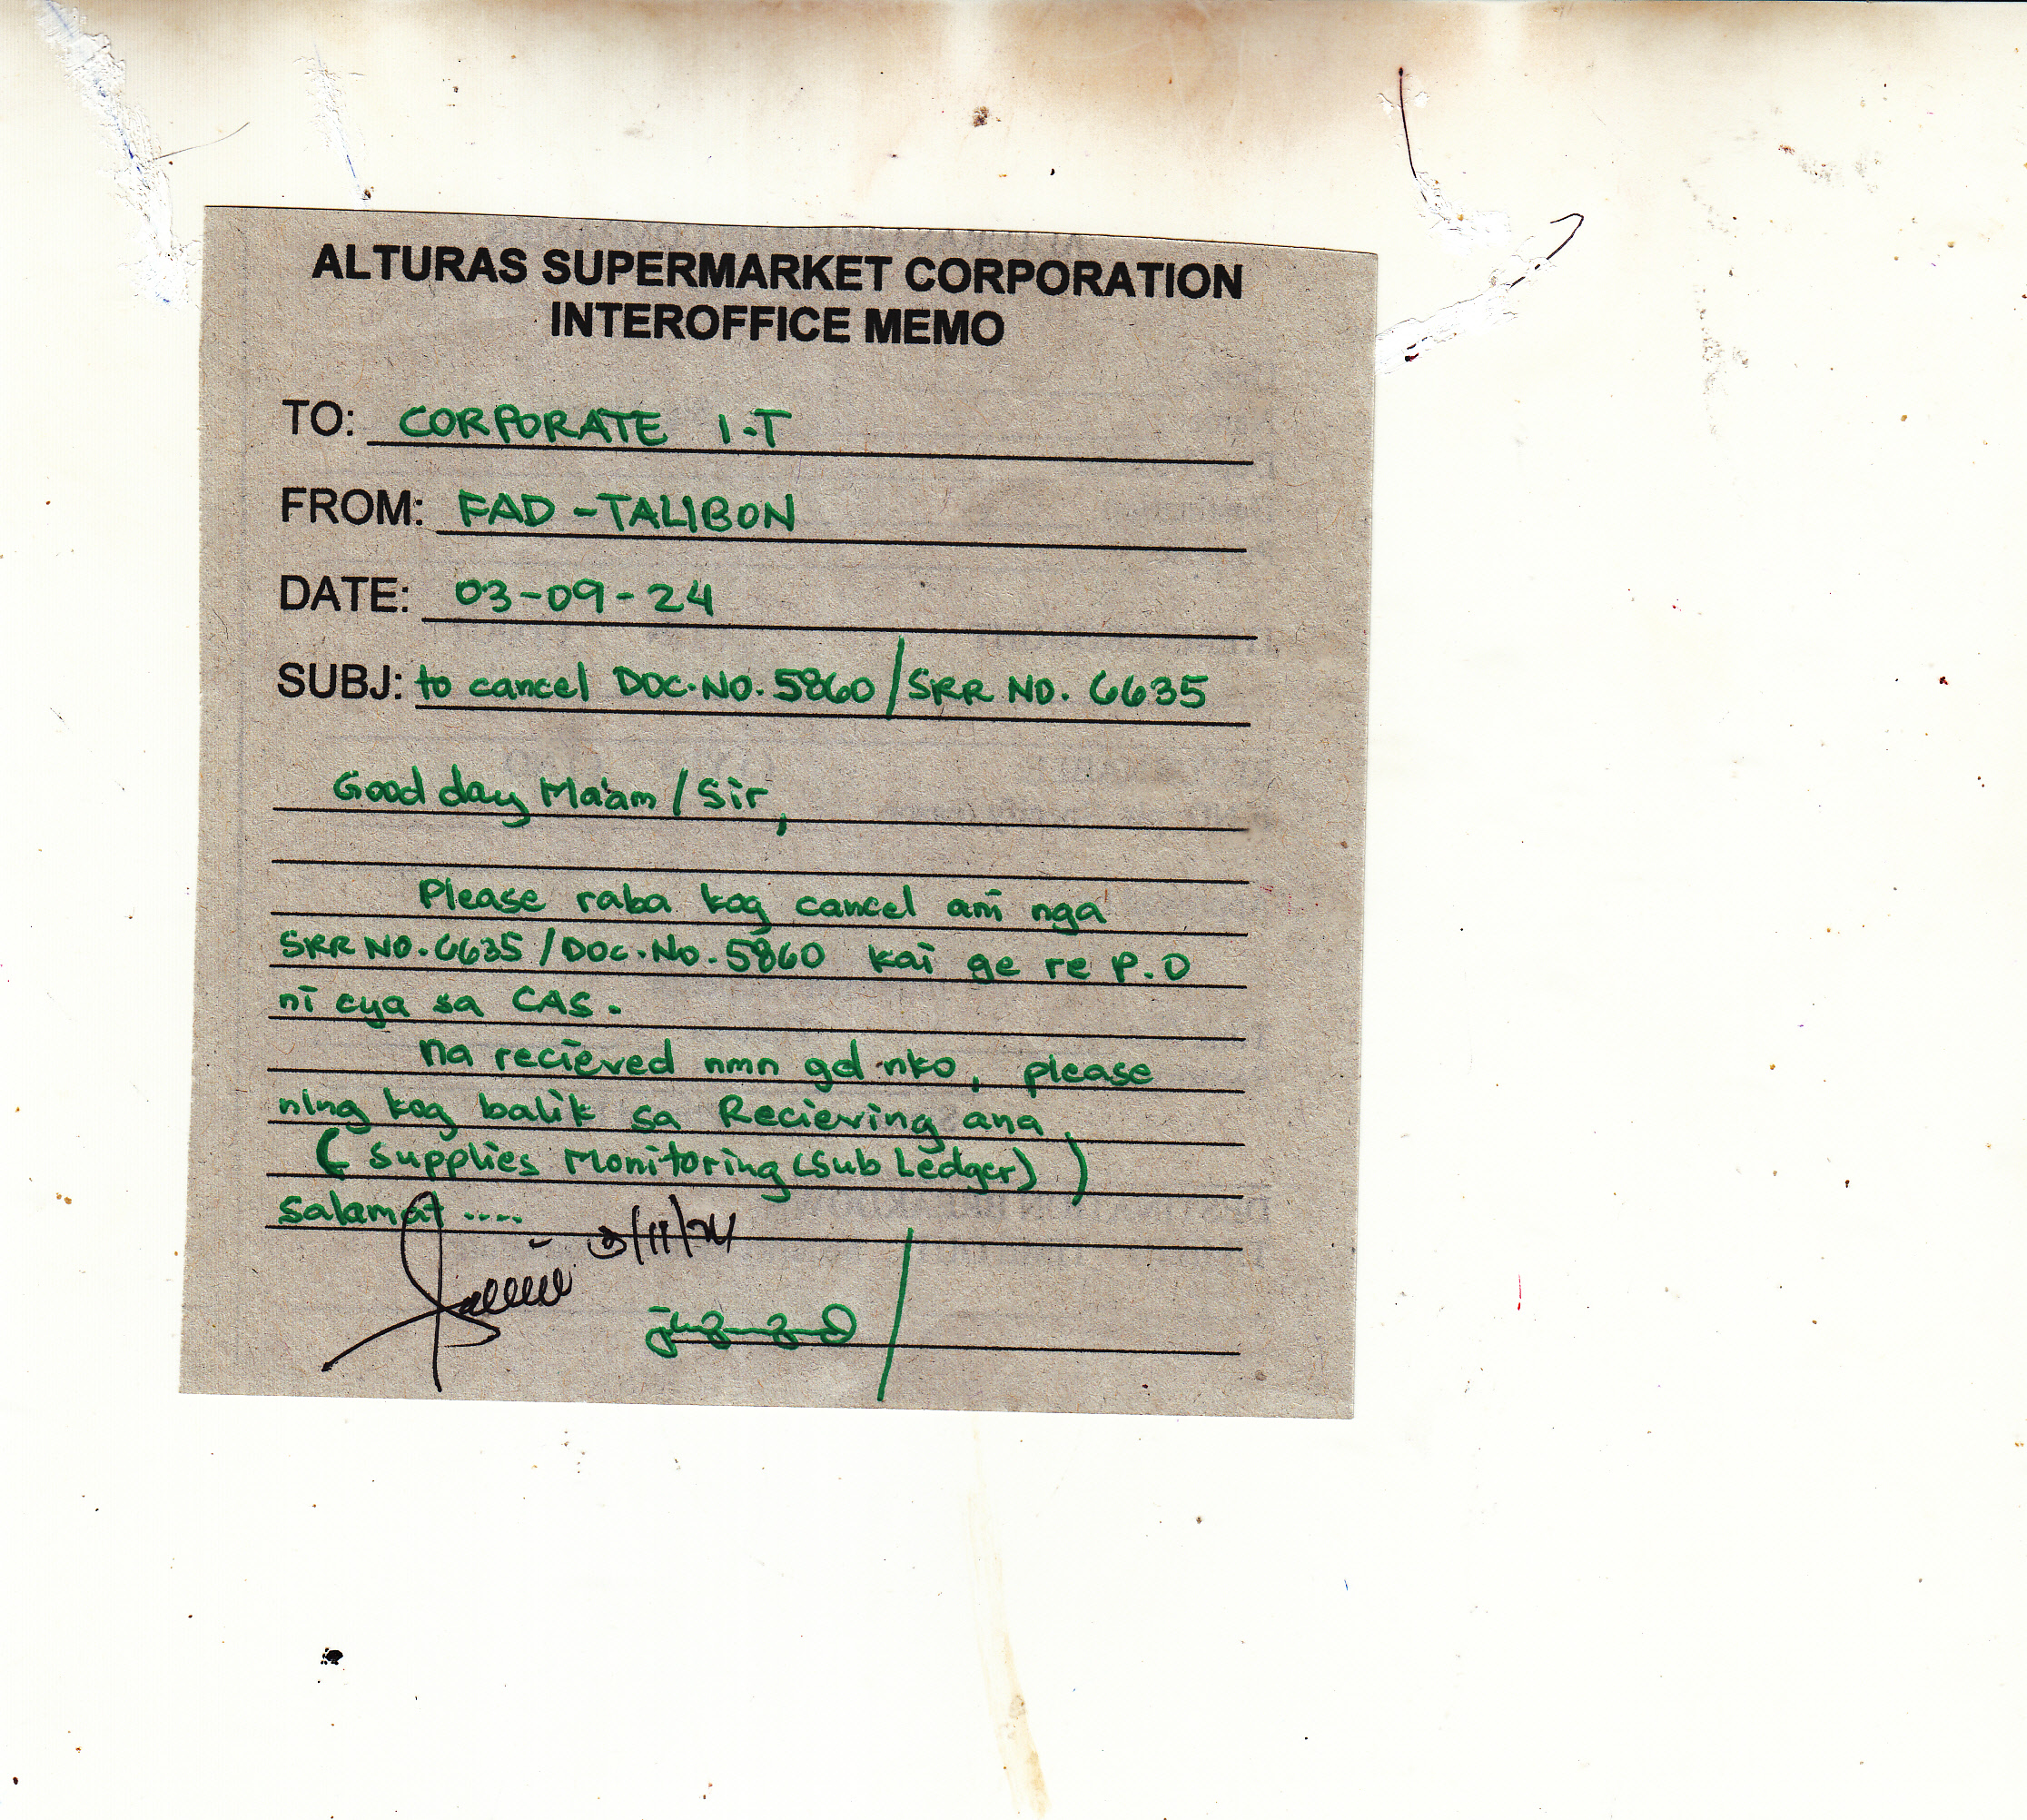 ALTURAS SUPERMARKET CORPORATION
INTEROFFICE MEMO
TO: CORPORATE I.T
FROM: FAD - TALIBON
DATE: 03-09-24
SUBJ: to cancel DOC.NO. 5860 / SRR NO. 6635
Good day Ma'am / Sir,
Please raba kog cancel ani nga
SRR NO. 6635 / DOC. No. 5860 kai ge re P.O
ni cya sa CAS.
na recieved nmn gd nko, please
ning kog balik sa Recieving ana,
( Supplies Monitoring (Sub Ledger) )
Salamat ....
3/11/24